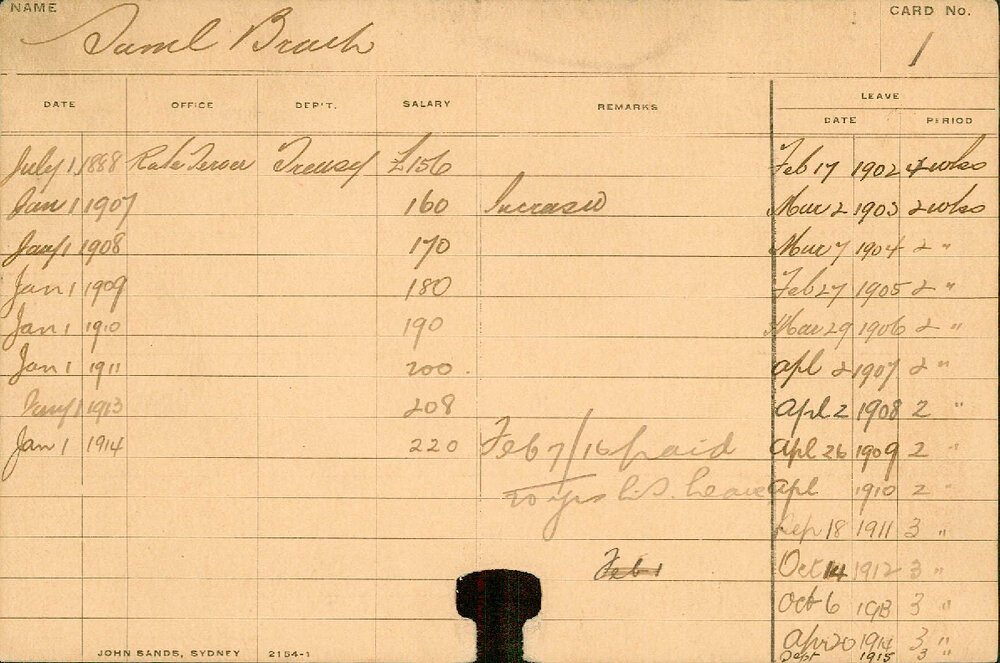 NAME CARD No.
Saml Brach 1
LEAVE
DATE OFFICE DEP'T. SALARY REMARKS DATE PERIOD
July 1 1888 Treasy £156 Feb 17 1902 4 wks
Jan 1 1907 160 Increased Mar 2 1903 2 wks
Jany 1 1908 170 Mar 7 1904 2 "
Jan 1 1909 180 Feb 27 1905 2 "
Jan 1 1910 190 Mar 29 1906 2 "
Jan 1 1911 200 Apl 2 1907 2 "
Jany 1 1913 208 Apl 2 1908 2 "
Jan 1 1914 220 Feb 7/16 paid Apl 26 1909 2 "
20 yrs L.S. Leave Apl 1910 2 "
Sep 18 1911 3 "
Feb 1 Oct 14 1912 3 "
Oct 6 1913 3 "
Apr 20 1914 3 "
JOHN SANDS, SYDNEY 2154-1 Sept 1915 3 "